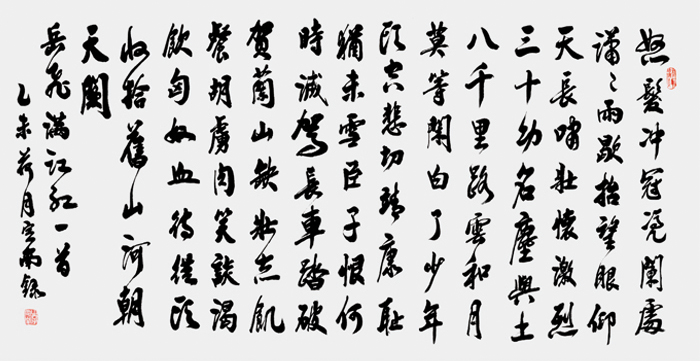 怒髮冲冠凭闌處
瀟〻雨歇抬望眼仰
天長嘯壯懷激烈
三十功名塵與土
八千里路雲和月
莫等閑白了少年
頭空悲切靖康耻
猶未雪臣子恨何
時滅駕長車踏破
賀蘭山缺壯志飢
餐胡虜肉笑談渴
飲匈奴血待從頭
收拾舊山河朝
天闕
岳飛滿江紅一首
乙未荷月